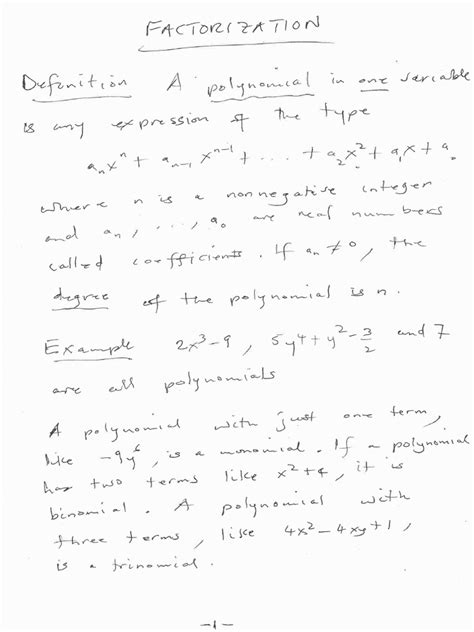 FACTORIZATION
Definition A polynomial in one variable
is any expression of the type
aₙxⁿ + aₙ₋₁ xⁿ⁻¹ + . . . + a₂x² + a₁x + a₀
where n is a nonnegative integer
and aₙ, . . . , a₀ are real numbers
called coefficients. If aₙ ≠ 0, the
degree of the polynomial is n.
Example 2x³-9, 5y⁴+y²-3/2 and 7
are all polynomials
A polynomial with just one term,
like -9y⁶, is a monomial. If a polynomial
has two terms like x²+4, it is
binomial. A polynomial with
three terms, like 4x²-4xy+1,
is a trinomial.
-1-